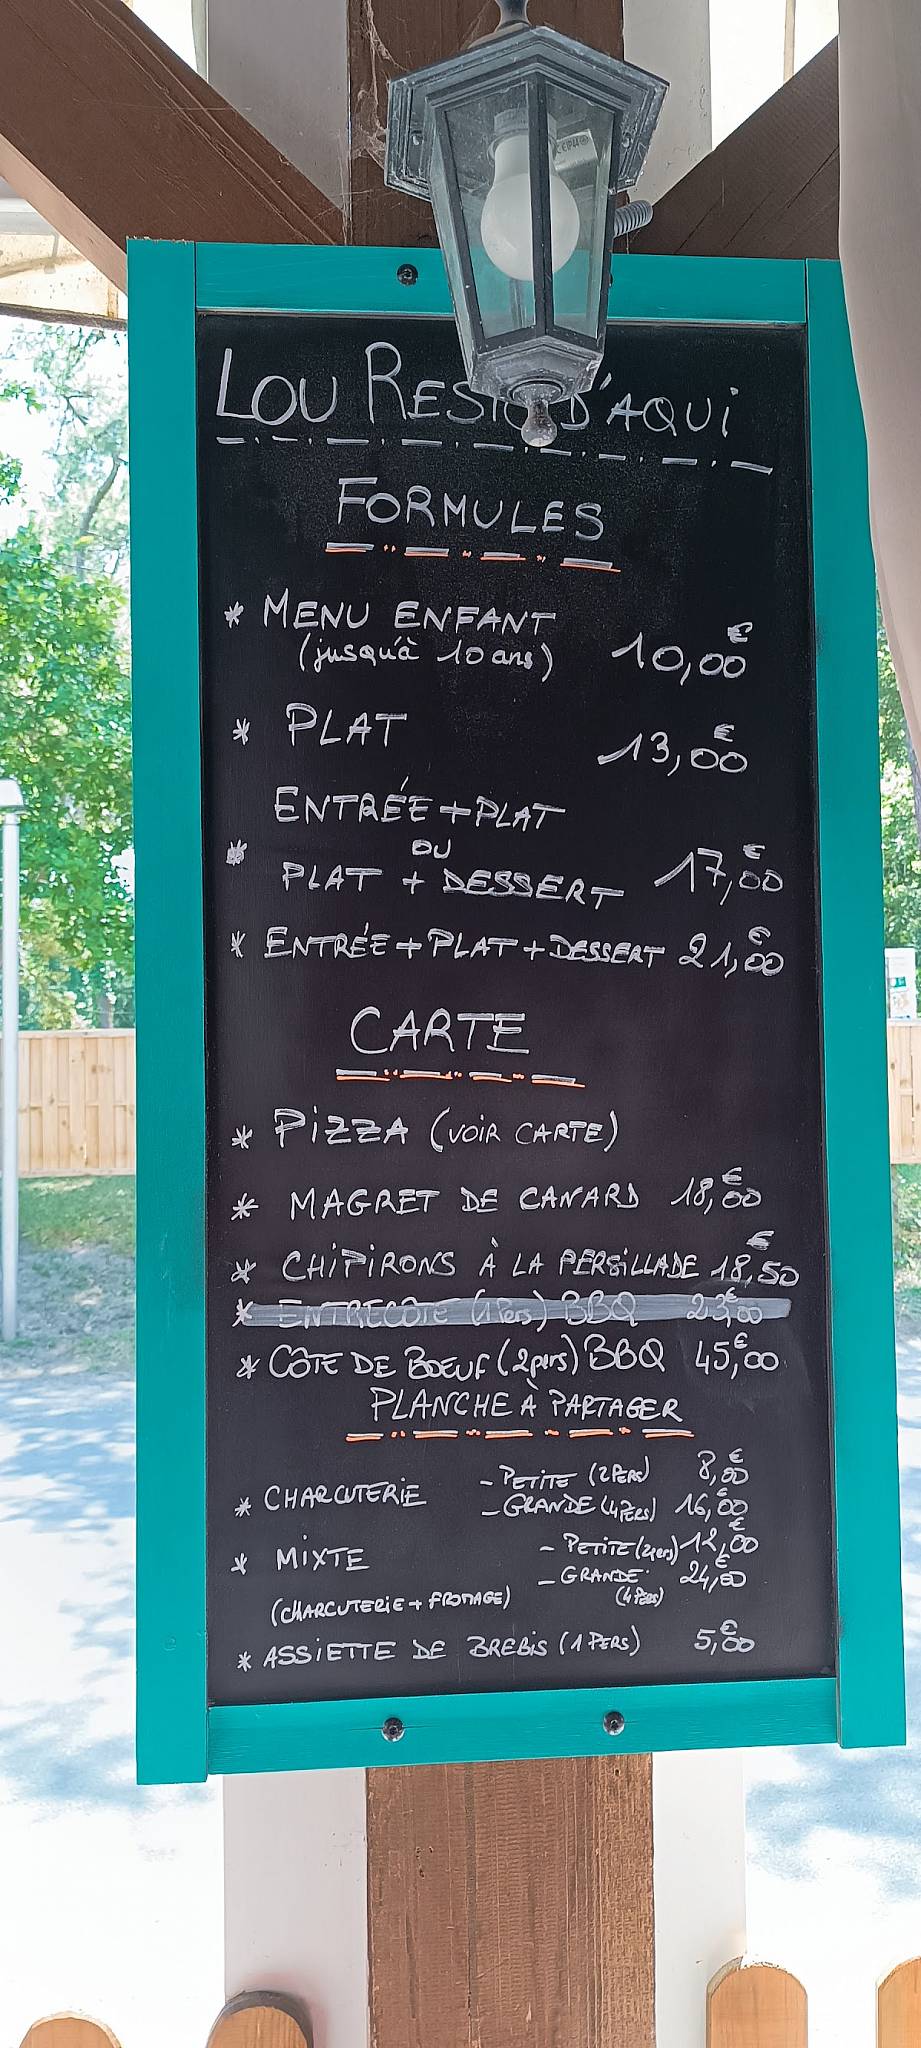 LOU RESTO D'AQUI
FORMULES
* MENU ENFANT
(jusqu'à 10 ans) 10,00€
* PLAT 13,00€
ENTRÉE + PLAT
* OU
PLAT + DESSERT 17,00€
* ENTRÉE + PLAT + DESSERT 21,00€
CARTE
* PIZZA (VOIR CARTE)
* MAGRET DE CANARD 18,00€
* CHIPIRONS À LA PERSILLADE 18,50€
* ENTRECÔTE (1 Pers) BBQ 23,00€
* CÔTE DE BOEUF (2 pers) BBQ 45,00€
PLANCHE À PARTAGER
* CHARCUTERIE - PETITE (2 PERS) 8,00€
- GRANDE (4 PERS) 16,00€
* MIXTE - PETITE (2 pers) 12,00€
- GRANDE 24,00€
(4 PERS)
(CHARCUTERIE + FROMAGE)
* ASSIETTE DE BREBIS (1 PERS) 5,00€